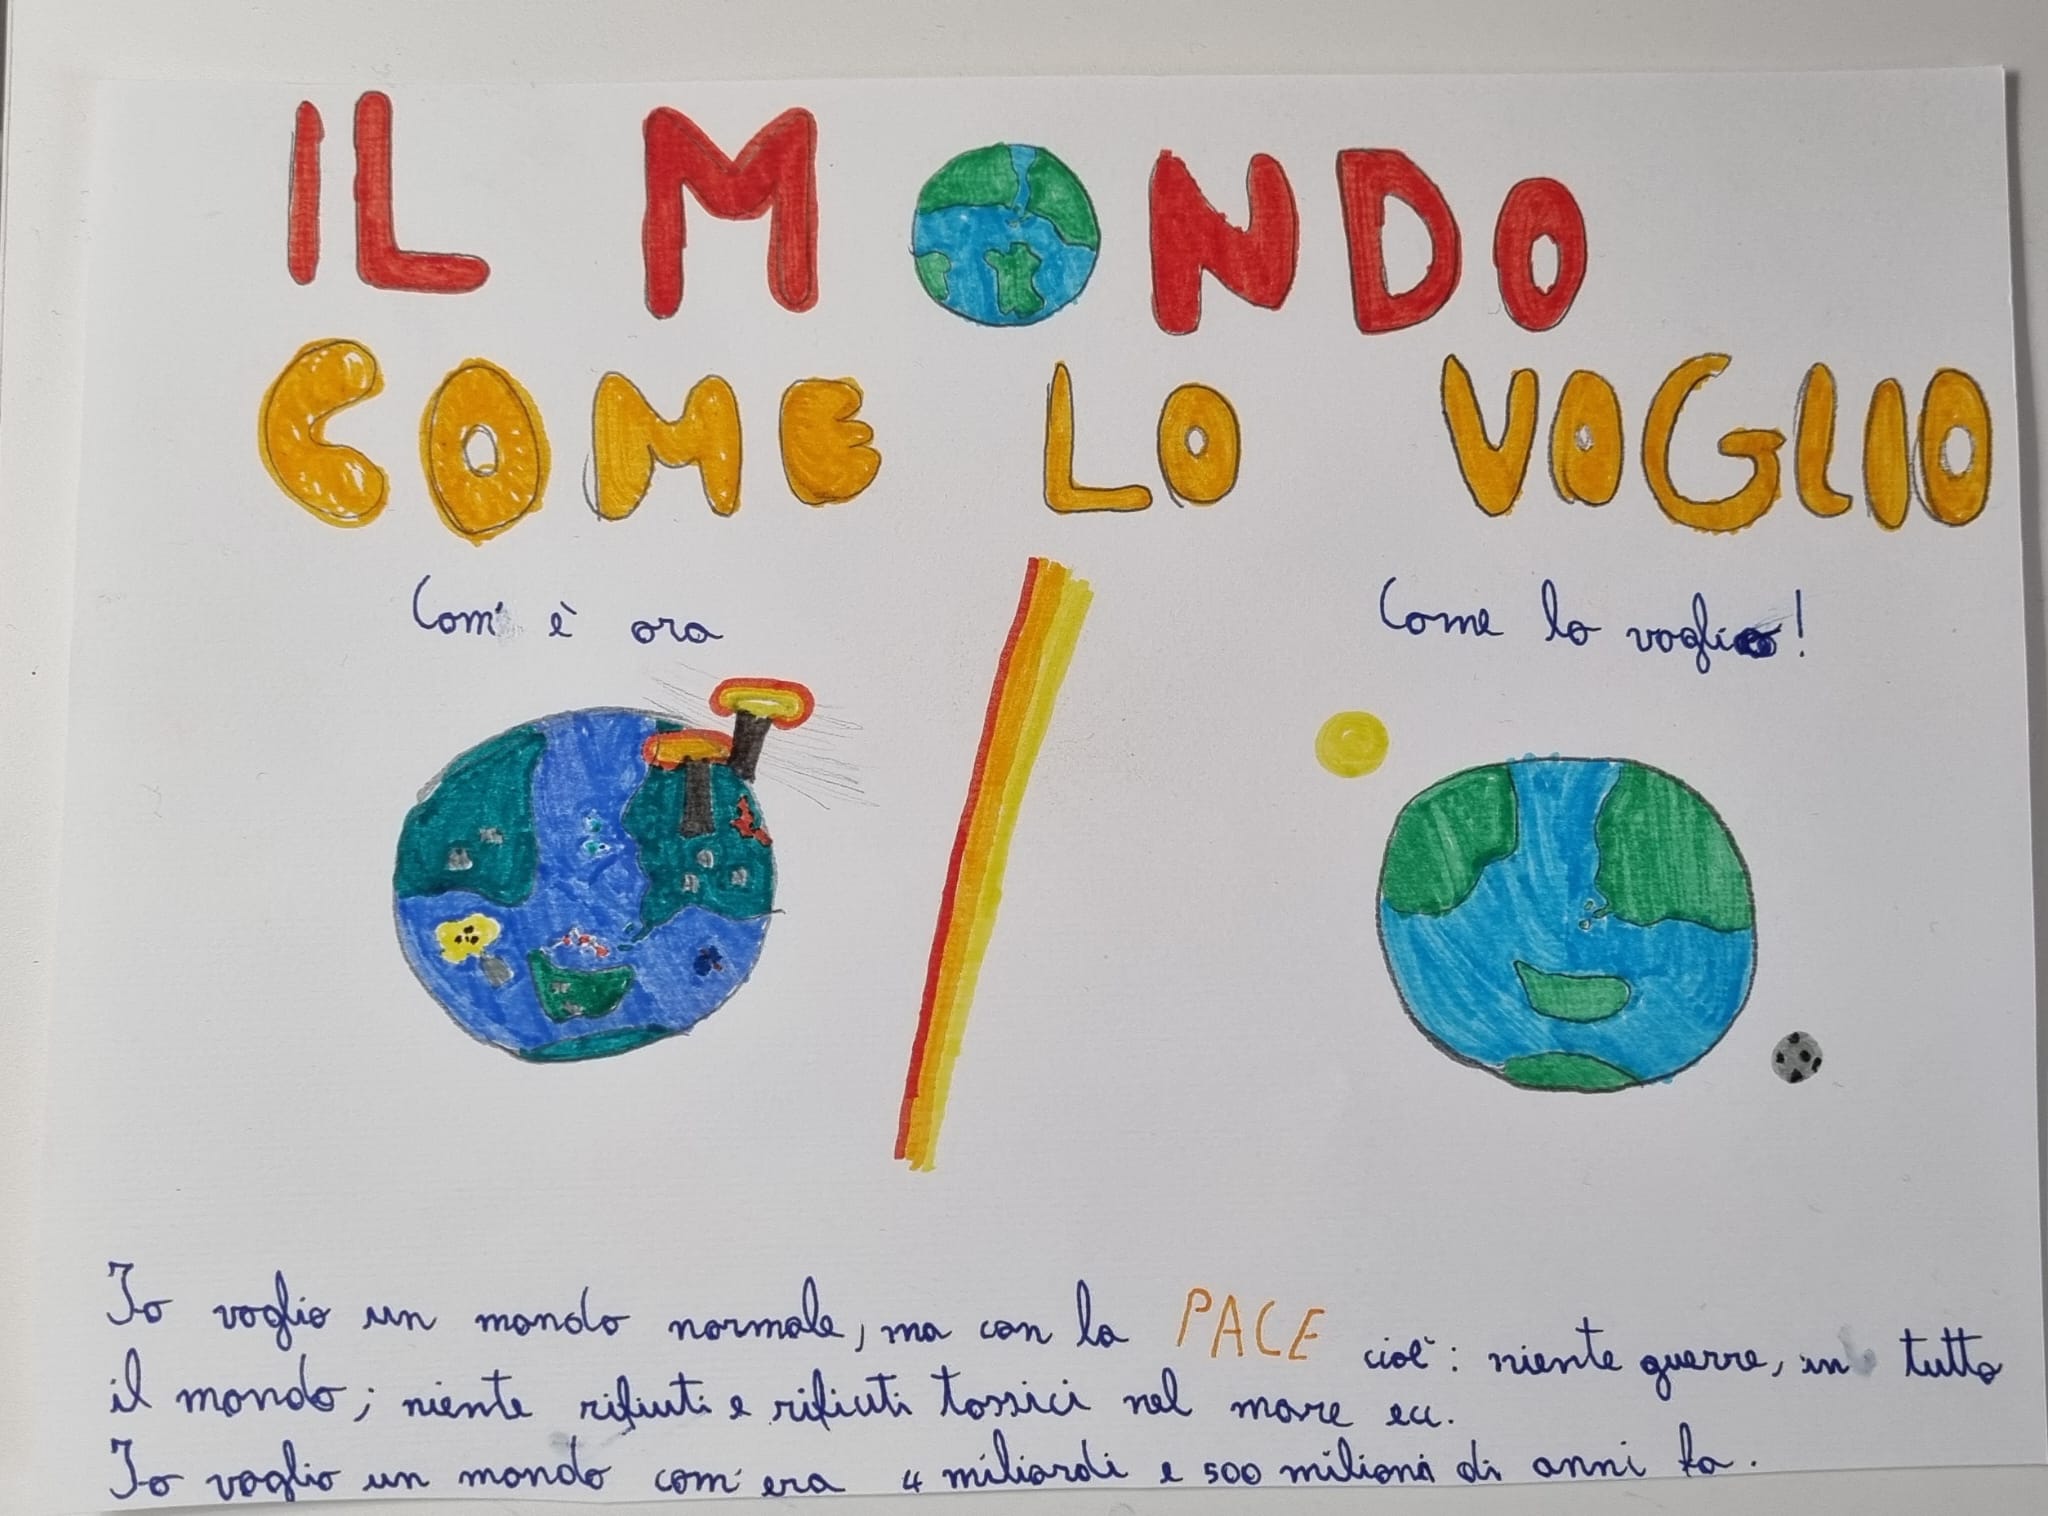 IL MONDO
COME LO VOGLIO
Com' è ora
Come lo voglio!
Io voglio un mondo normale, ma con la PACE cioè: niente guerre, in tutto
il mondo; niente rifiuti e rifiuti tossici nel mare ecc.
Io voglio un mondo com' era 4 miliardi e 500 milioni di anni fa.